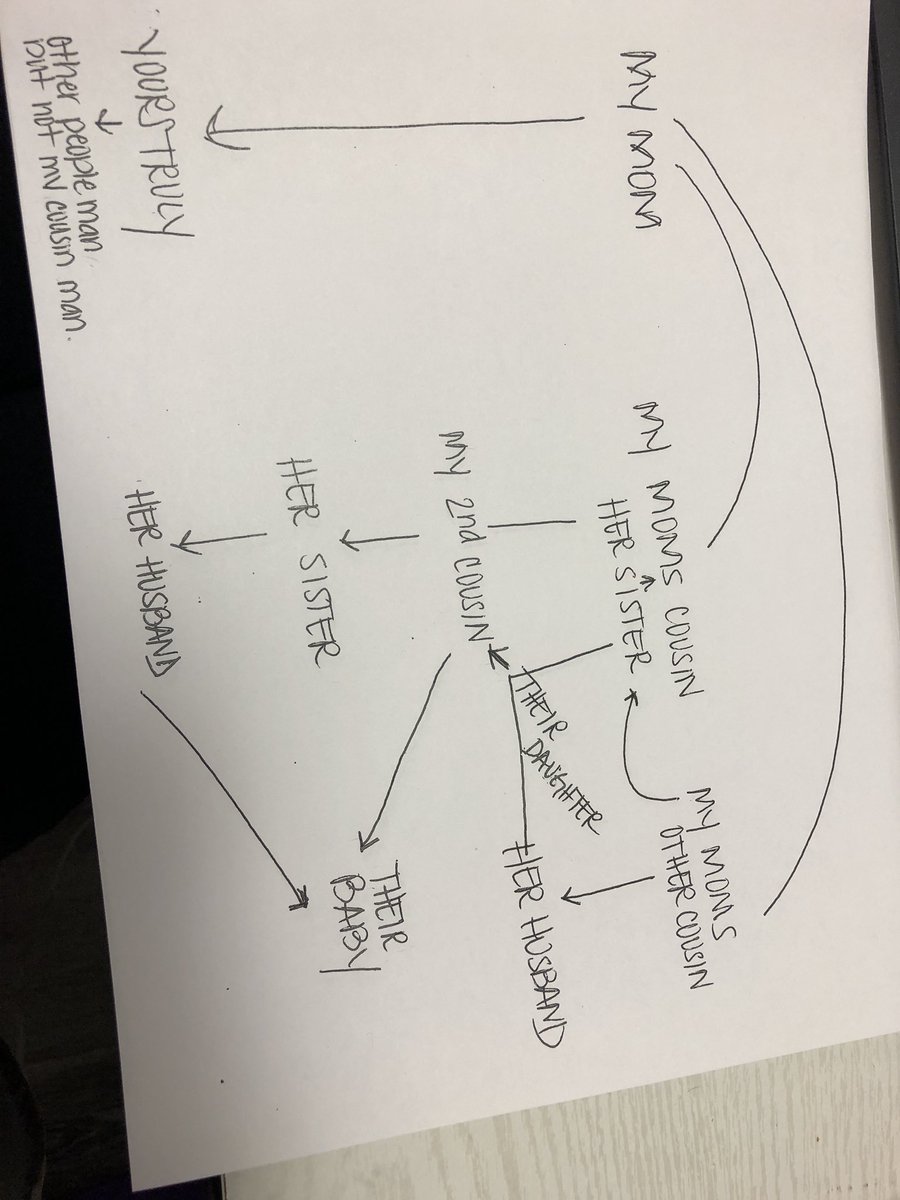 MY MOM
MY MOMS COUSIN
HER SISTER
MY MOMS
OTHER COUSIN
MY 2nd COUSIN
THEIR
DAUGHTER
HER HUSBAND
HER SISTER
THEIR
BABY
YOURS TRULY
HER HUSBAND
other people man
but not my cousin man.